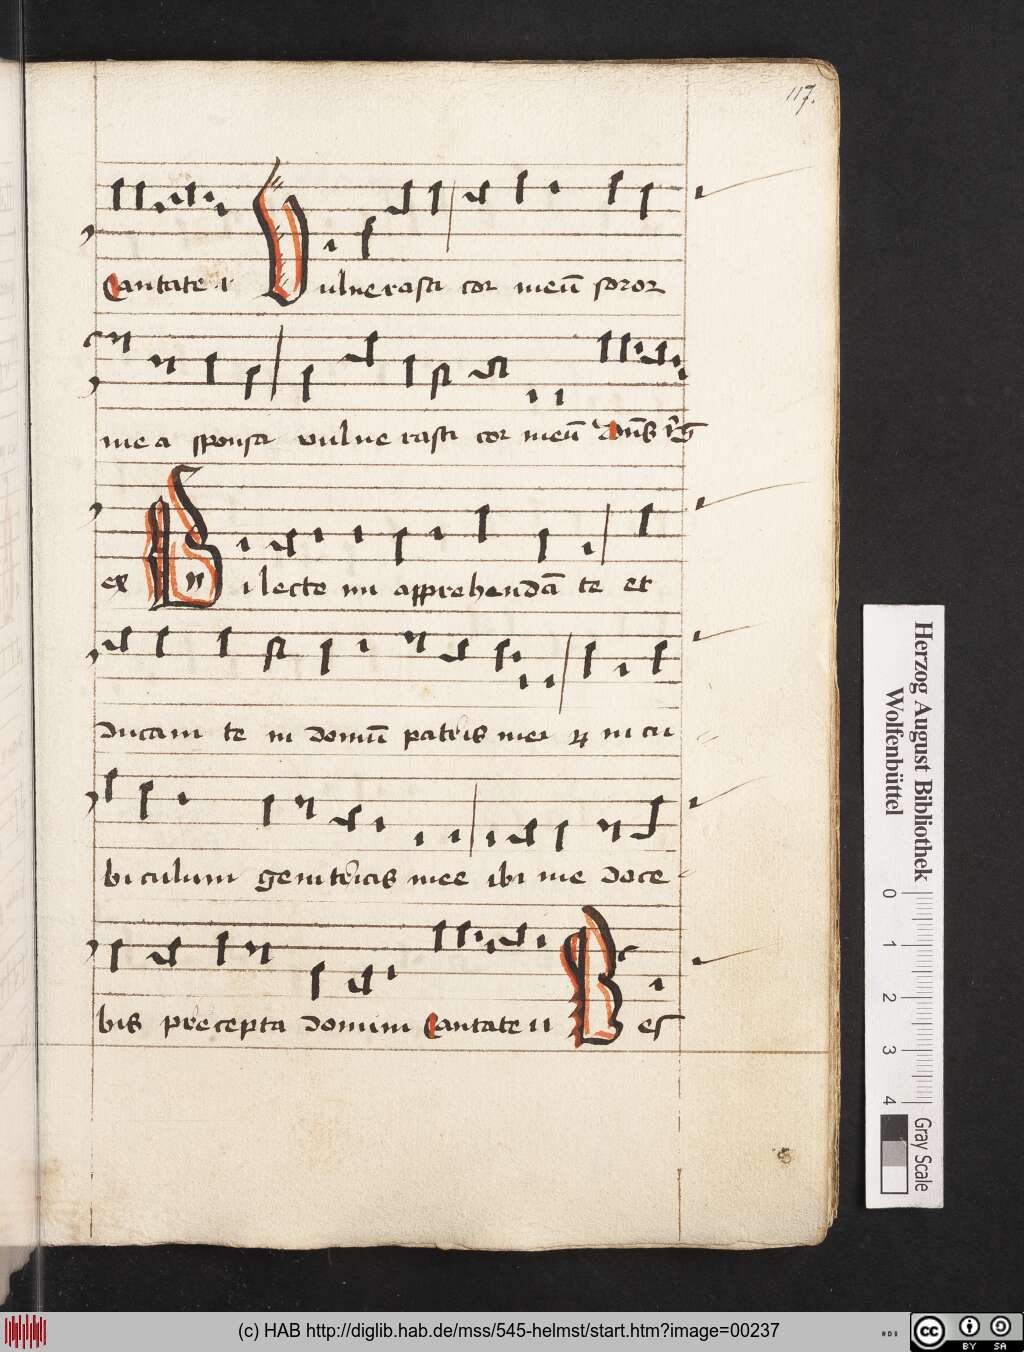 117.
Cantate i Vulnerasti cor meū soror
mea sponsa vulnerasti cor meū Dn̄s
ex Dilecte mi apprehendā te et
ducam te in domū patris mei et in cu
biculum genitricis mee ibi me doce
bis precepta domini Cantate ii Res
Herzog August Bibliothek
Wolfenbüttel
0 1 2 3 4
Gray Scale
(c) HAB http://diglib.hab.de/mss/545-helmst/start.htm?image=00237
HAB
cc BY SA